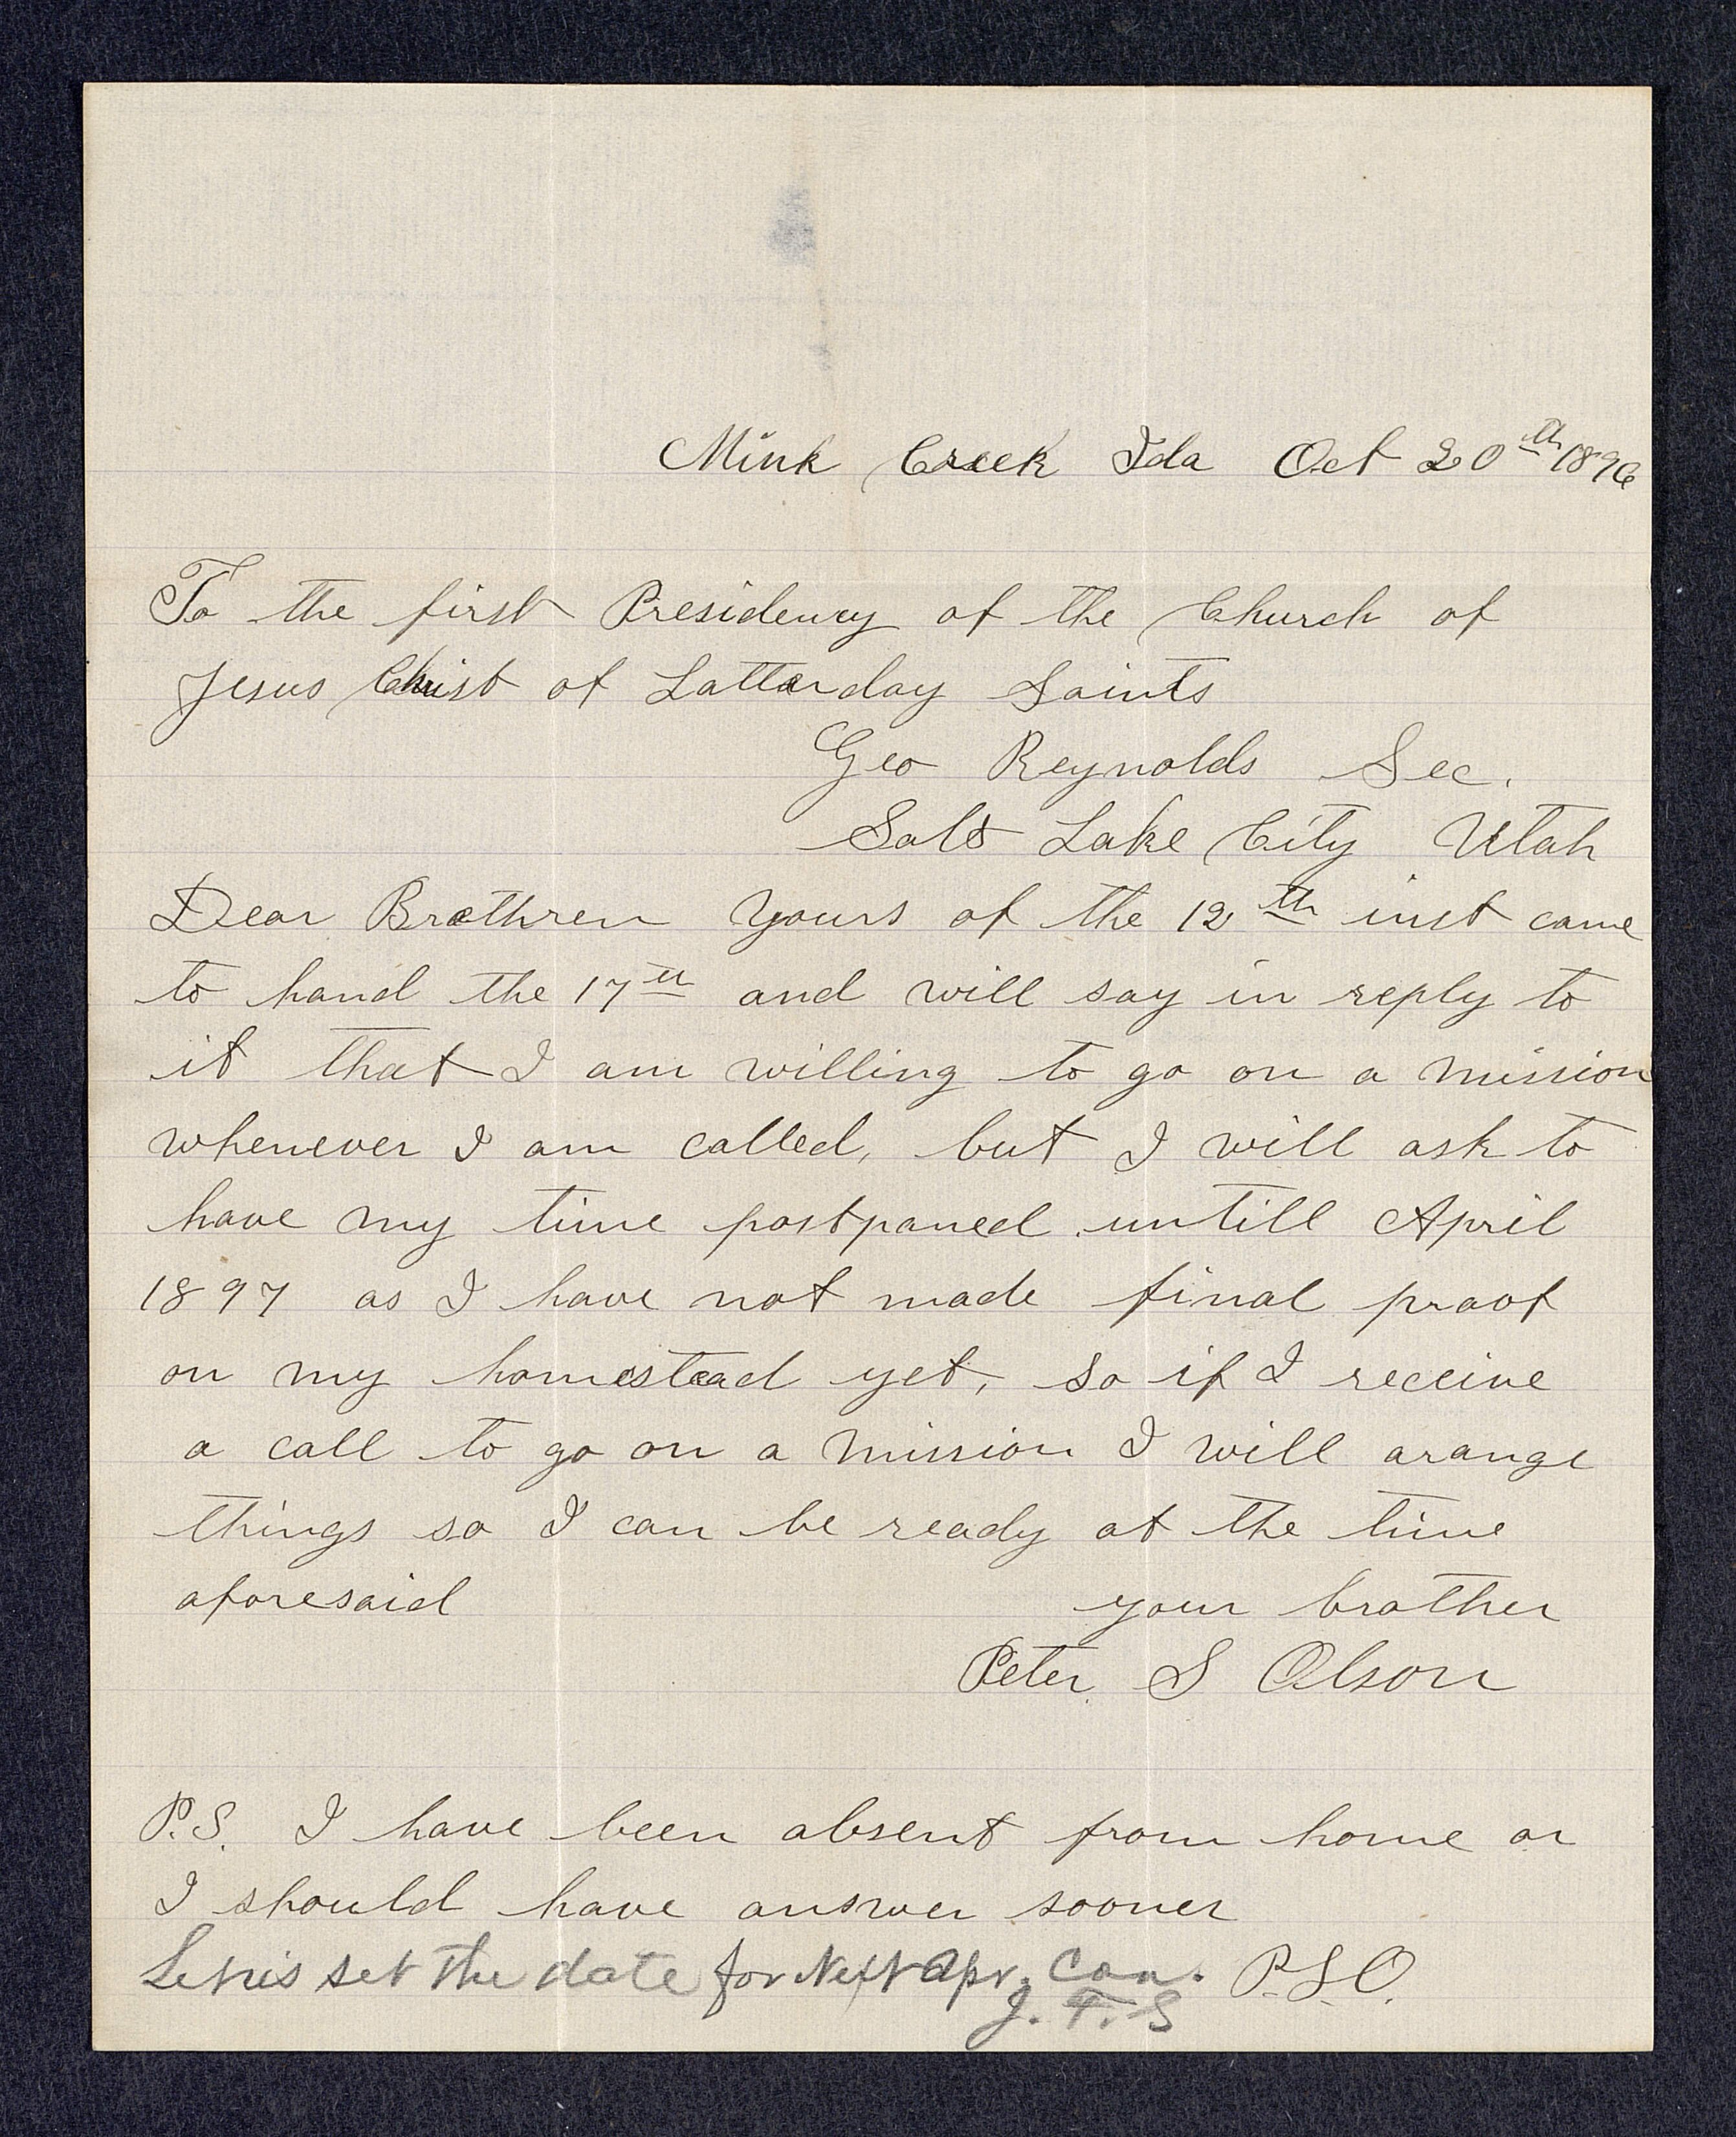 Mink Creek Ida Oct 20th 1896
To the first Presidency of the Church of
Jesus Christ of Latterday Saints
Geo Reynolds Sec.
Salt Lake City Utah
Dear Brethren Yours of the 12th inst came
to hand the 17th and will say in reply to
it that I am willing to go on a mission
whenever I am called, but I will ask to
have my time postponed untill April
1897 as I have not made final proof
on my homestead yet, so if I receive
a call to go on a mission I will arange
things so I can be ready at the time
aforesaid your brother
Peter S Olson
P.S. I have been absent from home or
I should have answer sooner
P.S.O.
set the date for Next Apr. Con.
J. F. S